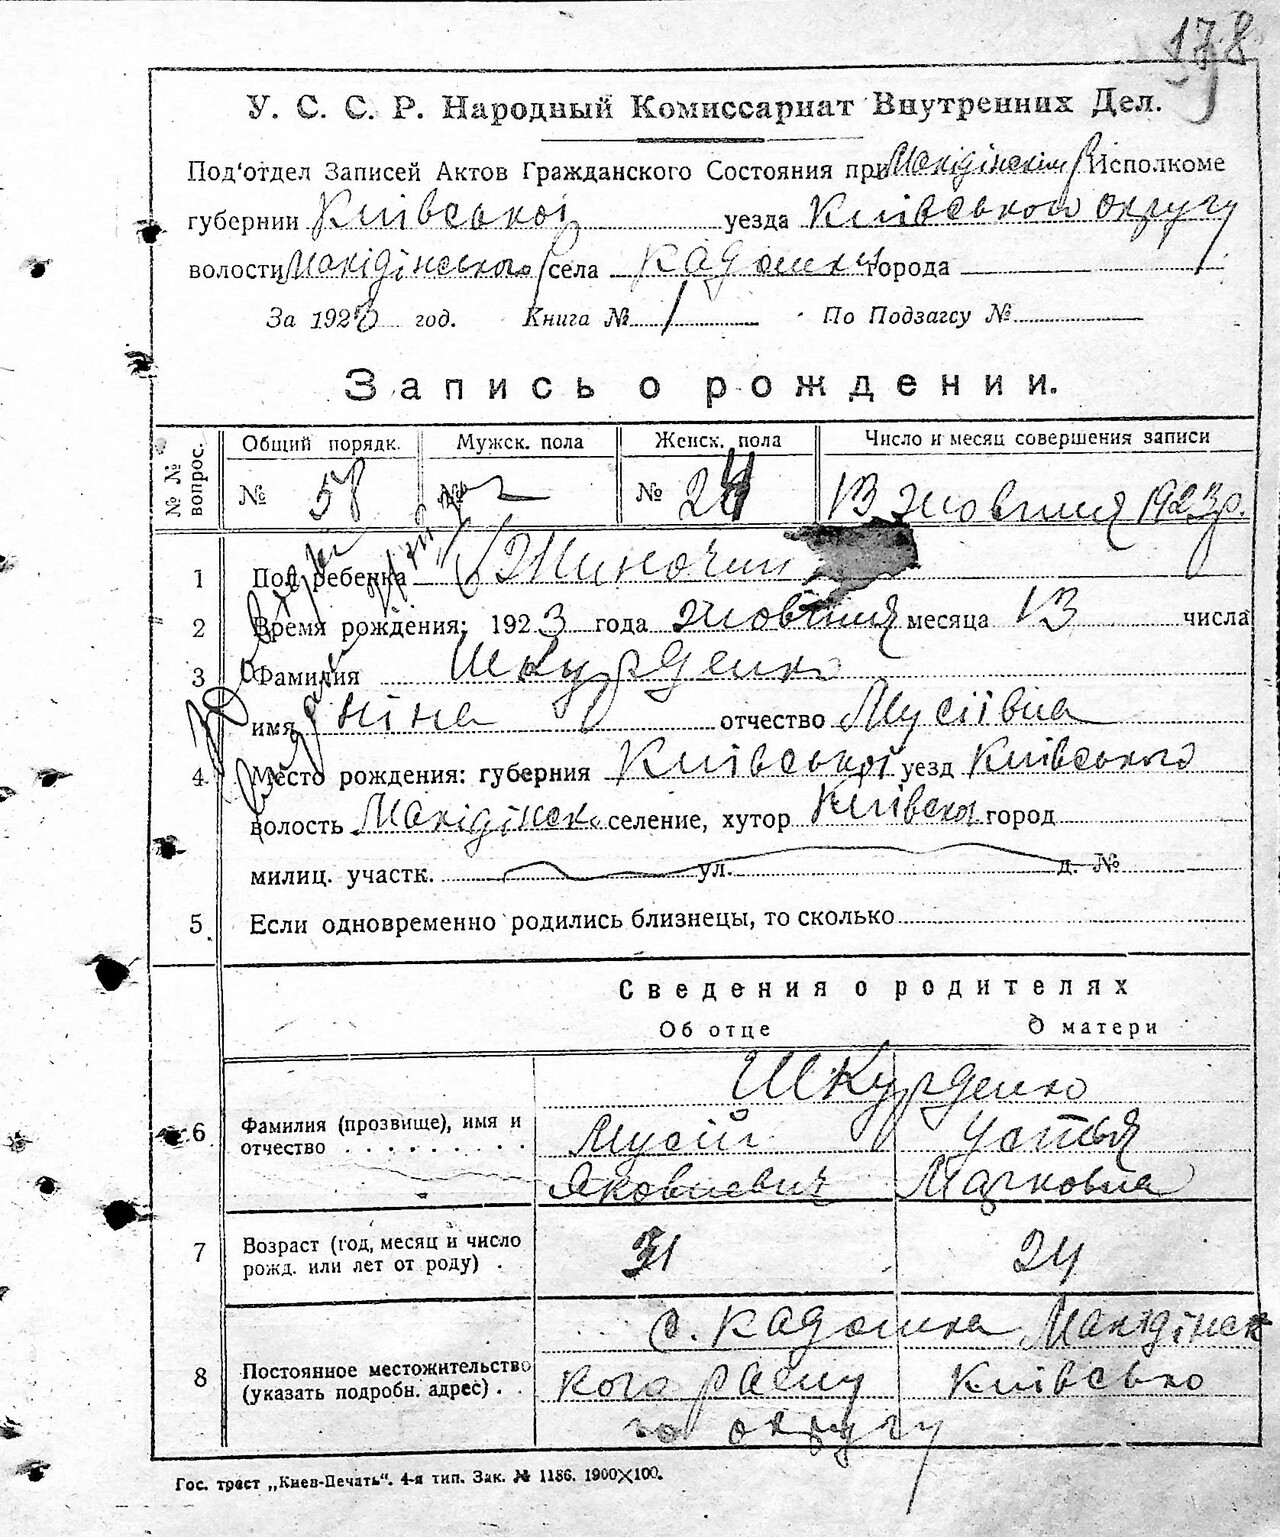 178
У. С. С. Р. Народный Комиссариат Внутренних Дел.
Под'отдел Записей Актов Гражданского Состояния при Макідінскім Р Исполкоме
губернии Київської уезда Київського округу
волости Макідінского р села Кадомка города
За 1923 год. Книга № 1 По Подзагсу №
Запись о рождении.
№ № вопрос.
Общий порядк. Мужск. пола Женск. пола Число и месяц совершения записи
№ 58 № № 24 13 жовтня 1923р.
1 Пол ребенка Жиночий
2 Время рождения: 1923 года жовтня месяца 13 числа
3 Фамилия Шкурденко
имя Ніна отчество Мусіівна
4 Место рождения: губерния Київської уезд Київського
волость Макідінск селение, хутор город
милиц. участк. ул. д. №
5 Если одновременно родились близнецы, то сколько
Сведения о родителях
Об отце О матери
Шкурденко
6 Фамилия (прозвище), имя и отчество
Мусій Устья
Яковлевич Марковна
7 Возраст (год, месяц и число рожд. или лет от роду) . 31 24
8 Постоянное местожительство (указать подробн. адрес) . .
с. Кадомка Макідінск
кого району Київсько
го округу
Гос. трест „Киев-Печать“. 4-я тип. Зак. № 1186. 1900×100.